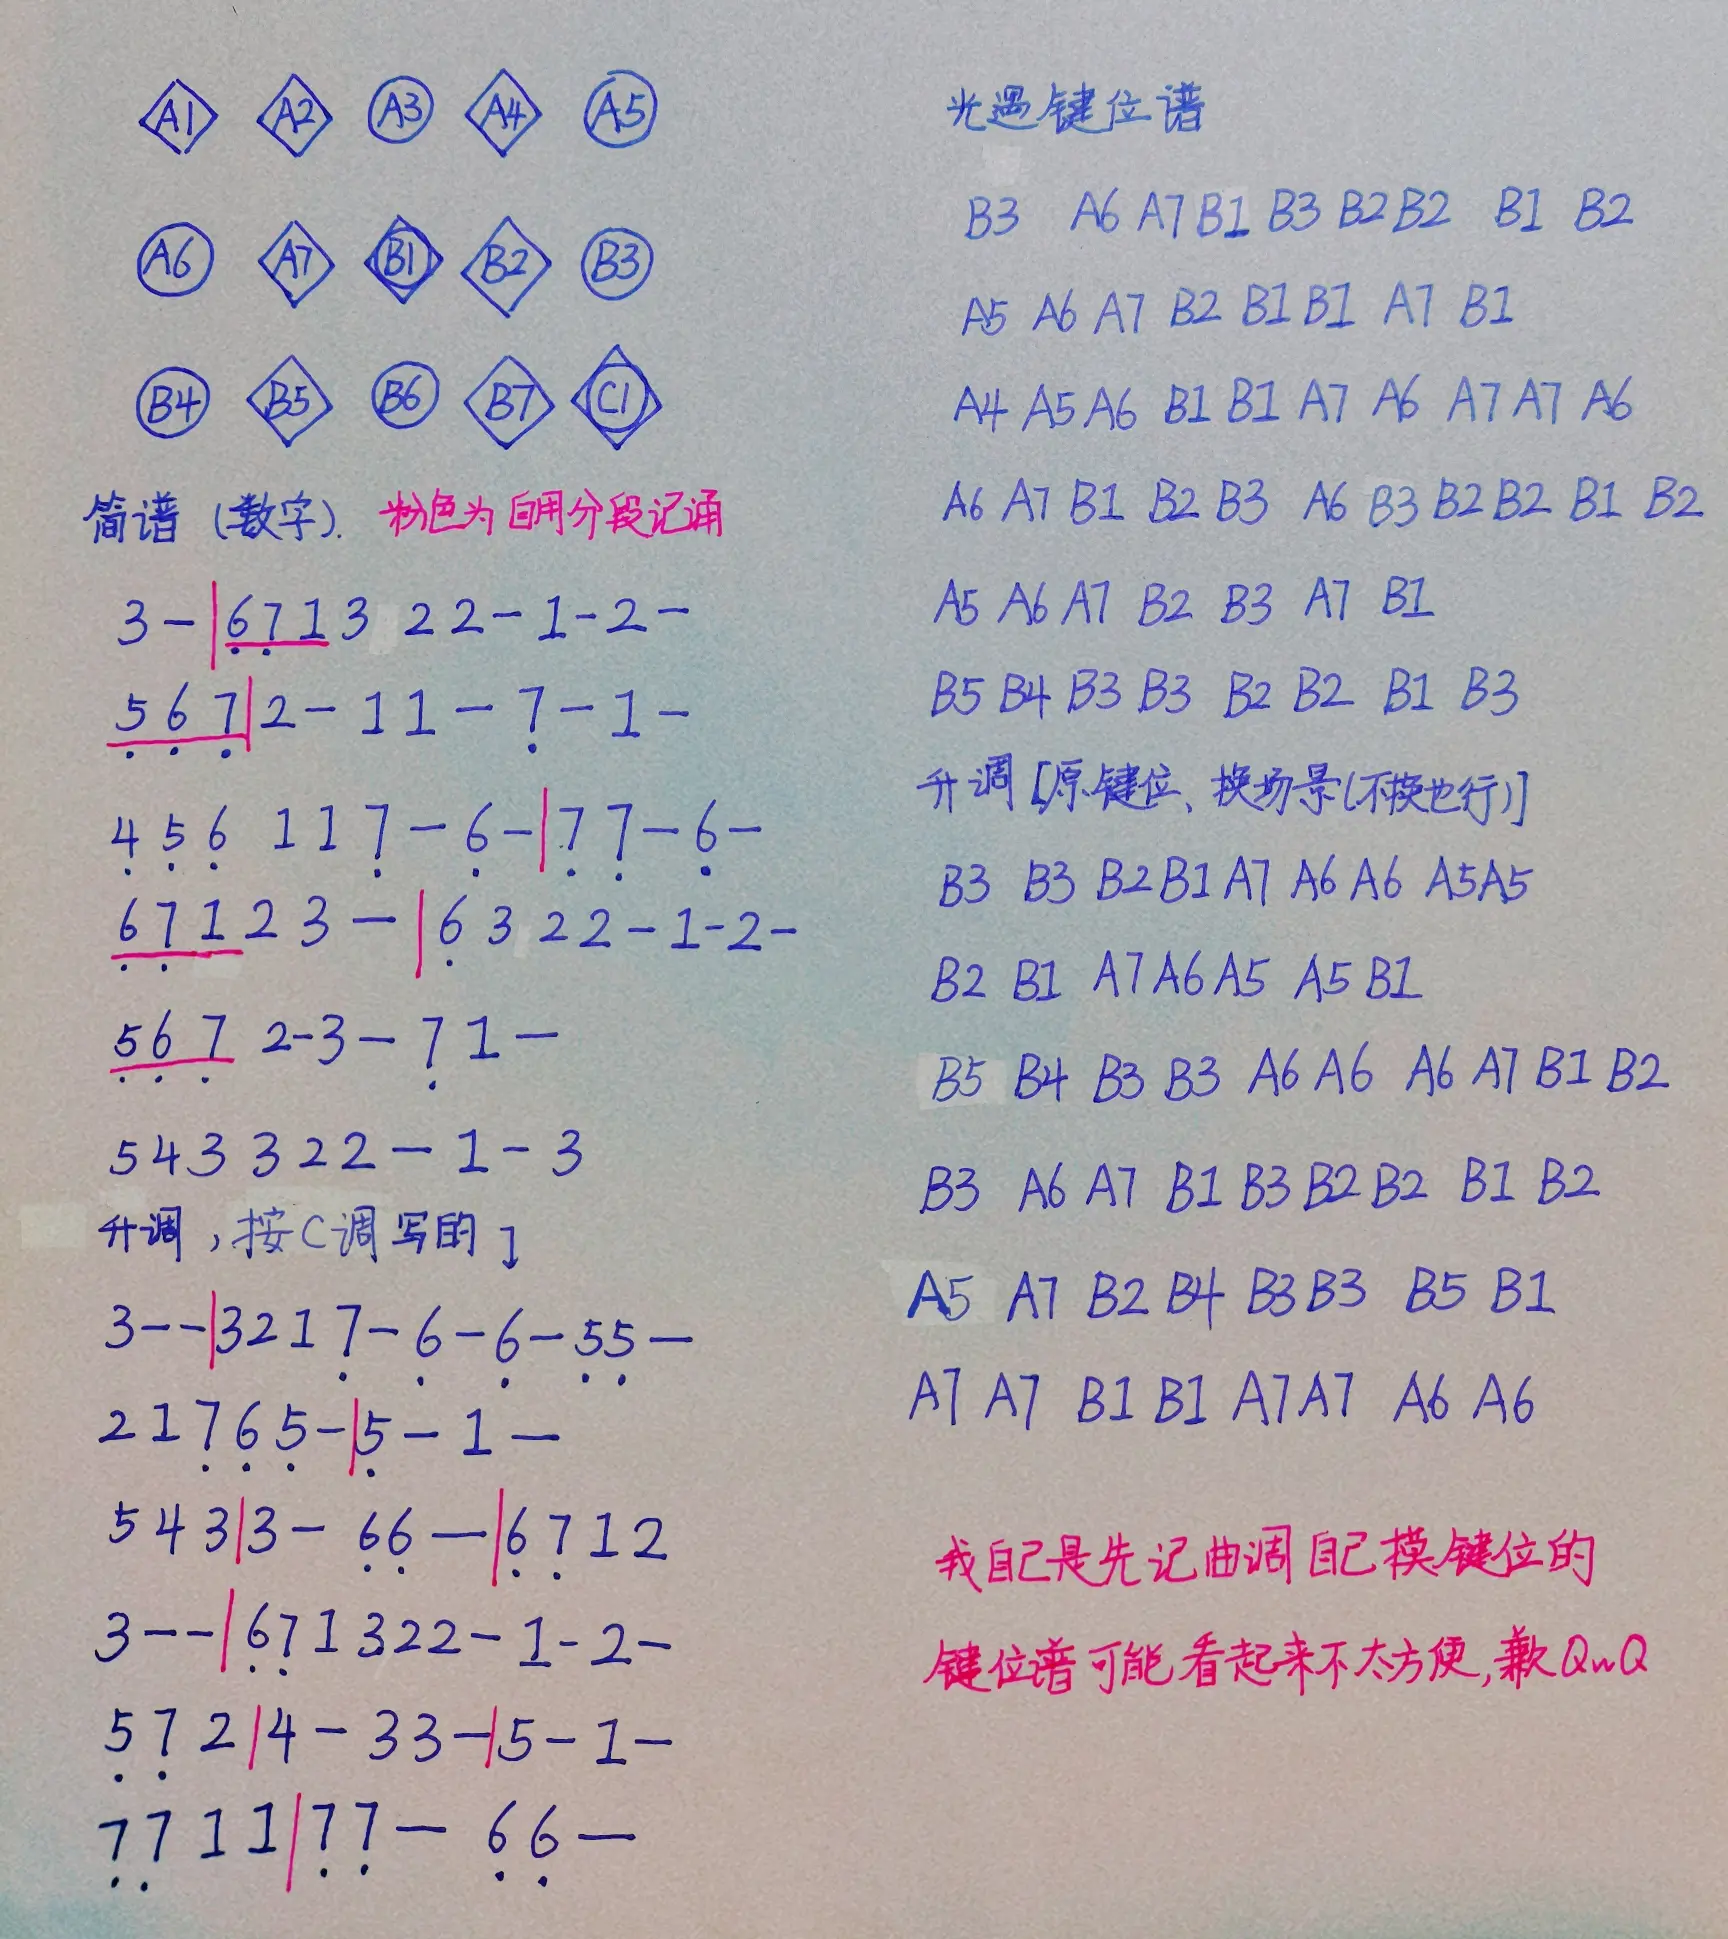 A1 A2 A3 A4 A5
A6 A7 B1 B2 B3
B4 B5 B6 B7 C1
简谱（数字）. 粉色为自用分段记诵
3-|6̣7̣13 22-1-2-
5̣6̣7̣|2-11-7̣-1-
4̣5̣6̣ 117̣-6̣-|7̣7̣-6̣-
6̣7̣123-|6̣322-1-2-
5̣6̣7̣ 2-3-7̣1-
543322-1-3
升调，按C调写的]
3--|3217̣-6̣-6̣-5̣5̣-
217̣6̣5̣-|5̣-1-
543|3-6̣6̣-|6̣7̣12
3--|6̣7̣1322-1-2-
5̣7̣2|4-33-|5-1-
7̣7̣11|7̣7̣-6̣6̣-
光遇键位谱
B3 A6 A7 B1 B3 B2 B2 B1 B2
A5 A6 A7 B2 B1 B1 A7 B1
A4 A5 A6 B1 B1 A7 A6 A7 A7 A6
A6 A7 B1 B2 B3 A6 B3 B2 B2 B1 B2
A5 A6 A7 B2 B3 A7 B1
B5 B4 B3 B3 B2 B2 B1 B3
升调[原键位、换场景(不换也行)]
B3 B3 B2 B1 A7 A6 A6 A5 A5
B2 B1 A7 A6 A5 A5 B1
B5 B4 B3 B3 A6 A6 A6 A7 B1 B2
B3 A6 A7 B1 B3 B2 B2 B1 B2
A5 A7 B2 B4 B3 B3 B5 B1
A7 A7 B1 B1 A7 A7 A6 A6
我自己是先记曲调自己摸键位的
键位谱可能看起来不太方便,歉QwQ